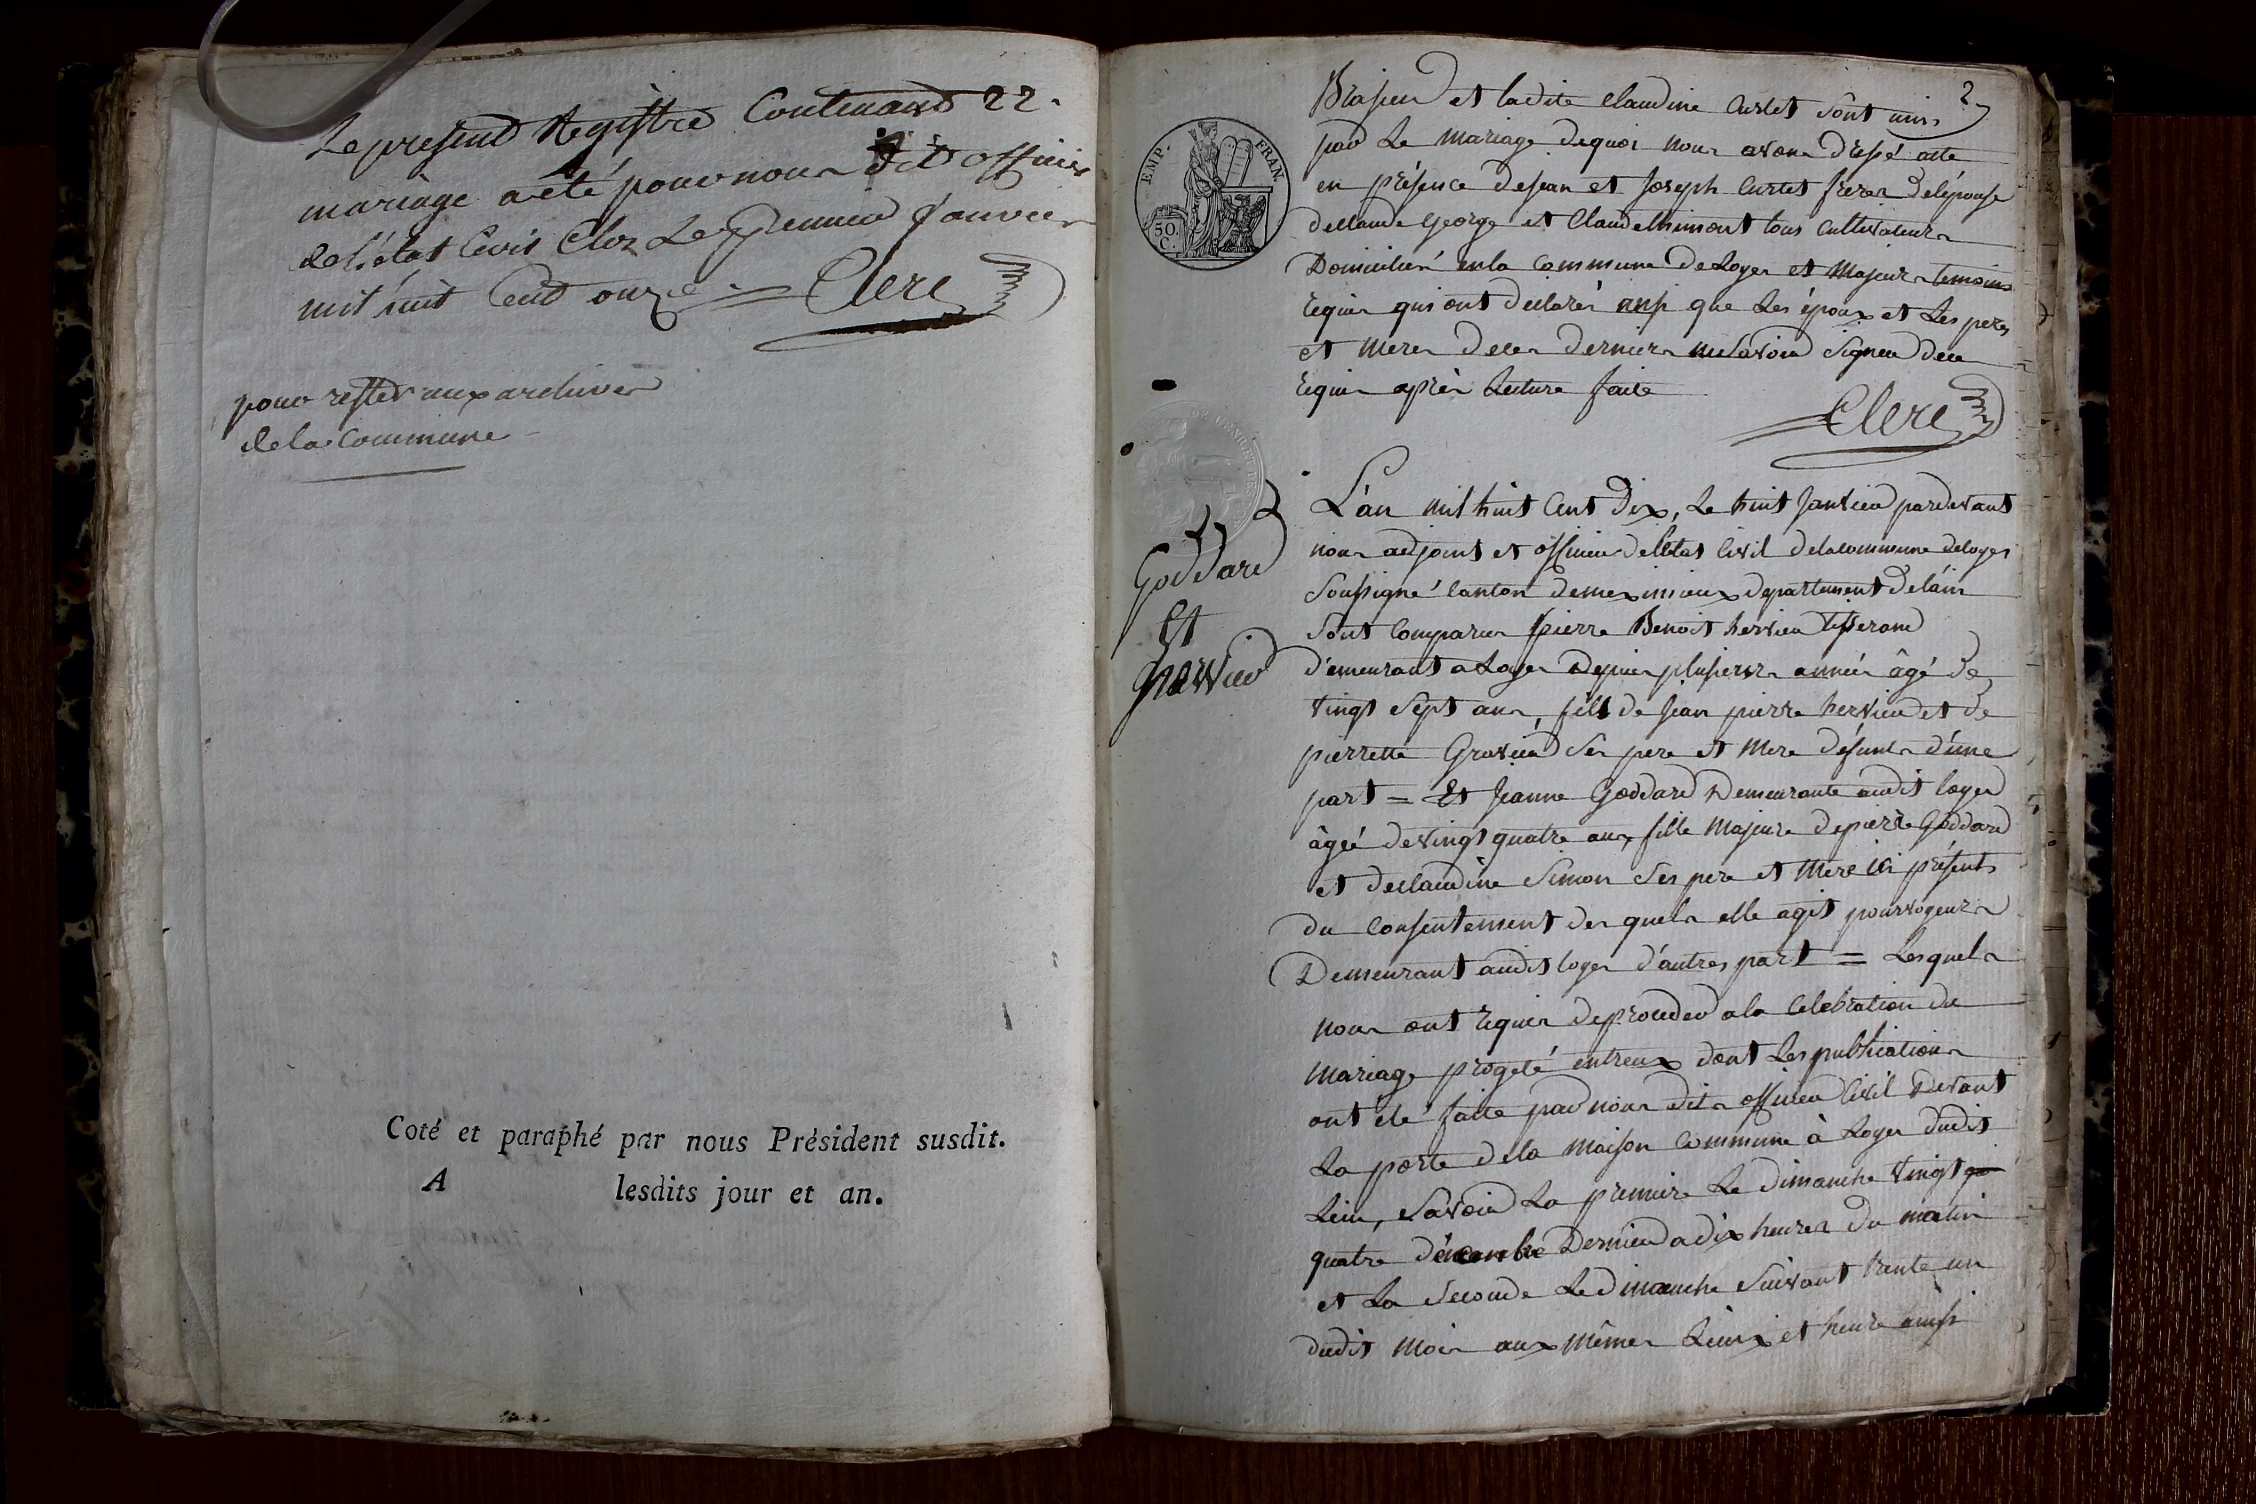 Le present Registre Contenant 22.
mariage a eté pour nous dit officier
de l'état Civil Clos Le premier Janvier
mil huit Cent onze = Clerc
pour rester aux archives
de la Commune
Coté et paraphé par nous Président susdit.
A lesdits jour et an.
2
EMP. FRAN.
50.
C.
et ladite Claudine Curtet sônt unis
par Le mariage dequoi nous avons dressé acte
en présence de jean et Joseph Curtet freres de lépouse
de Claude George et Claude thimont tous Cultivateurs
Domiciliés en la Commune de Loyes et Majeurs temoins
requis qui ont declarés ainsi que Les époux et Les peres
et Meres de ces derniers ne Savoir Signer de ce
requis après Lecture faite
Clerc
Goddard
Et
hervieu
L'an mil huit Cent Dix, Le huit Janvier pardevant
nous adjoint et officier de l'Etat Civil de la commune de loyes
Soussigné Canton de meximieux departement de l'ain
Sont Comparus pierre Benoit hervieu tisserand
demeurant a Loyes depuis plusieurs années âgé de
Vingt Sept ans, fils de Jean pierre hervieu et de
pierrette Gravier Ses pere et Mere défunts d'une
part = Et Jeanne Goddard Demeurante audit loyes
âgée de vingt quatre ans, fille Majeure de pierre Goddard
et de Claudine Simon Ses pere et Mere ici présents
du Consentement des quels elle agit pourvoyeurs
Demeurant audit loyes d'autres part = Lesquels
nous ont requis de proceder a la Celebration du
Mariage progeté entreux dont Les publications
ont été faite par nous dits officier Civil Devant
La porte de la Maison Commune à Loyes dudit
Lieu, Savoir La premiere Le Dimanche Vingt
quatre décembre Dernier a dix heures du matin
et La Seconde Le Dimanche Suivant trente un
dudit Mois aux Mêmes Lieux et heure ainsi